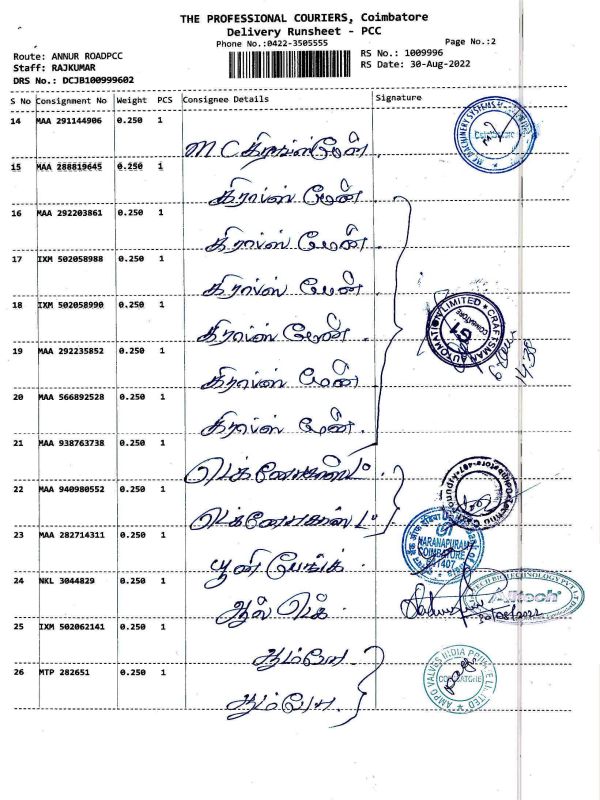 THE PROFESSIONAL COURIERS, Coimbatore
Delivery Runsheet - PCC
Phone No.:0422-3505555
Page No.:2
Route: ANNUR ROADPCC
Staff: RAJKUMAR
DRS No.: DCJB100999602
RS No.: 1009996
RS Date: 30-Aug-2022
S No Consignment No Weight PCS Consignee Details Signature
14 MAA 291144906 0.250 1
15 MAA 288819645 0.250 1
கிராப்ஸ் மேன்
16 MAA 292203861 0.250 1
கிராப்ஸ் மேன்
17 IXM 502058988 0.250 1
கிராப்ஸ் மேன்
18 IXM 502058990 0.250 1
கிராப்ஸ் மேன்
19 MAA 292235852 0.250 1
கிராப்ஸ் மேன்
20 MAA 566892528 0.250 1
கிராப்ஸ் மேன்
21 MAA 938763738 0.250 1
22 MAA 940980552 0.250 1
23 MAA 282714311 0.250 1
24 NKL 3044829 0.250 1
ஆல் டெக்
25 IXM 502062141 0.250 1
26 MTP 282651 0.250 1
CRAFTSMAN AUTOMATION LIMITED
COIMBATORE
G1
14:30
NARANAPURAM
COIMBATORE
Alltech
30/08/2022
AMPO VALVES INDIA PRIVATE LIMITED
COIMBATORE